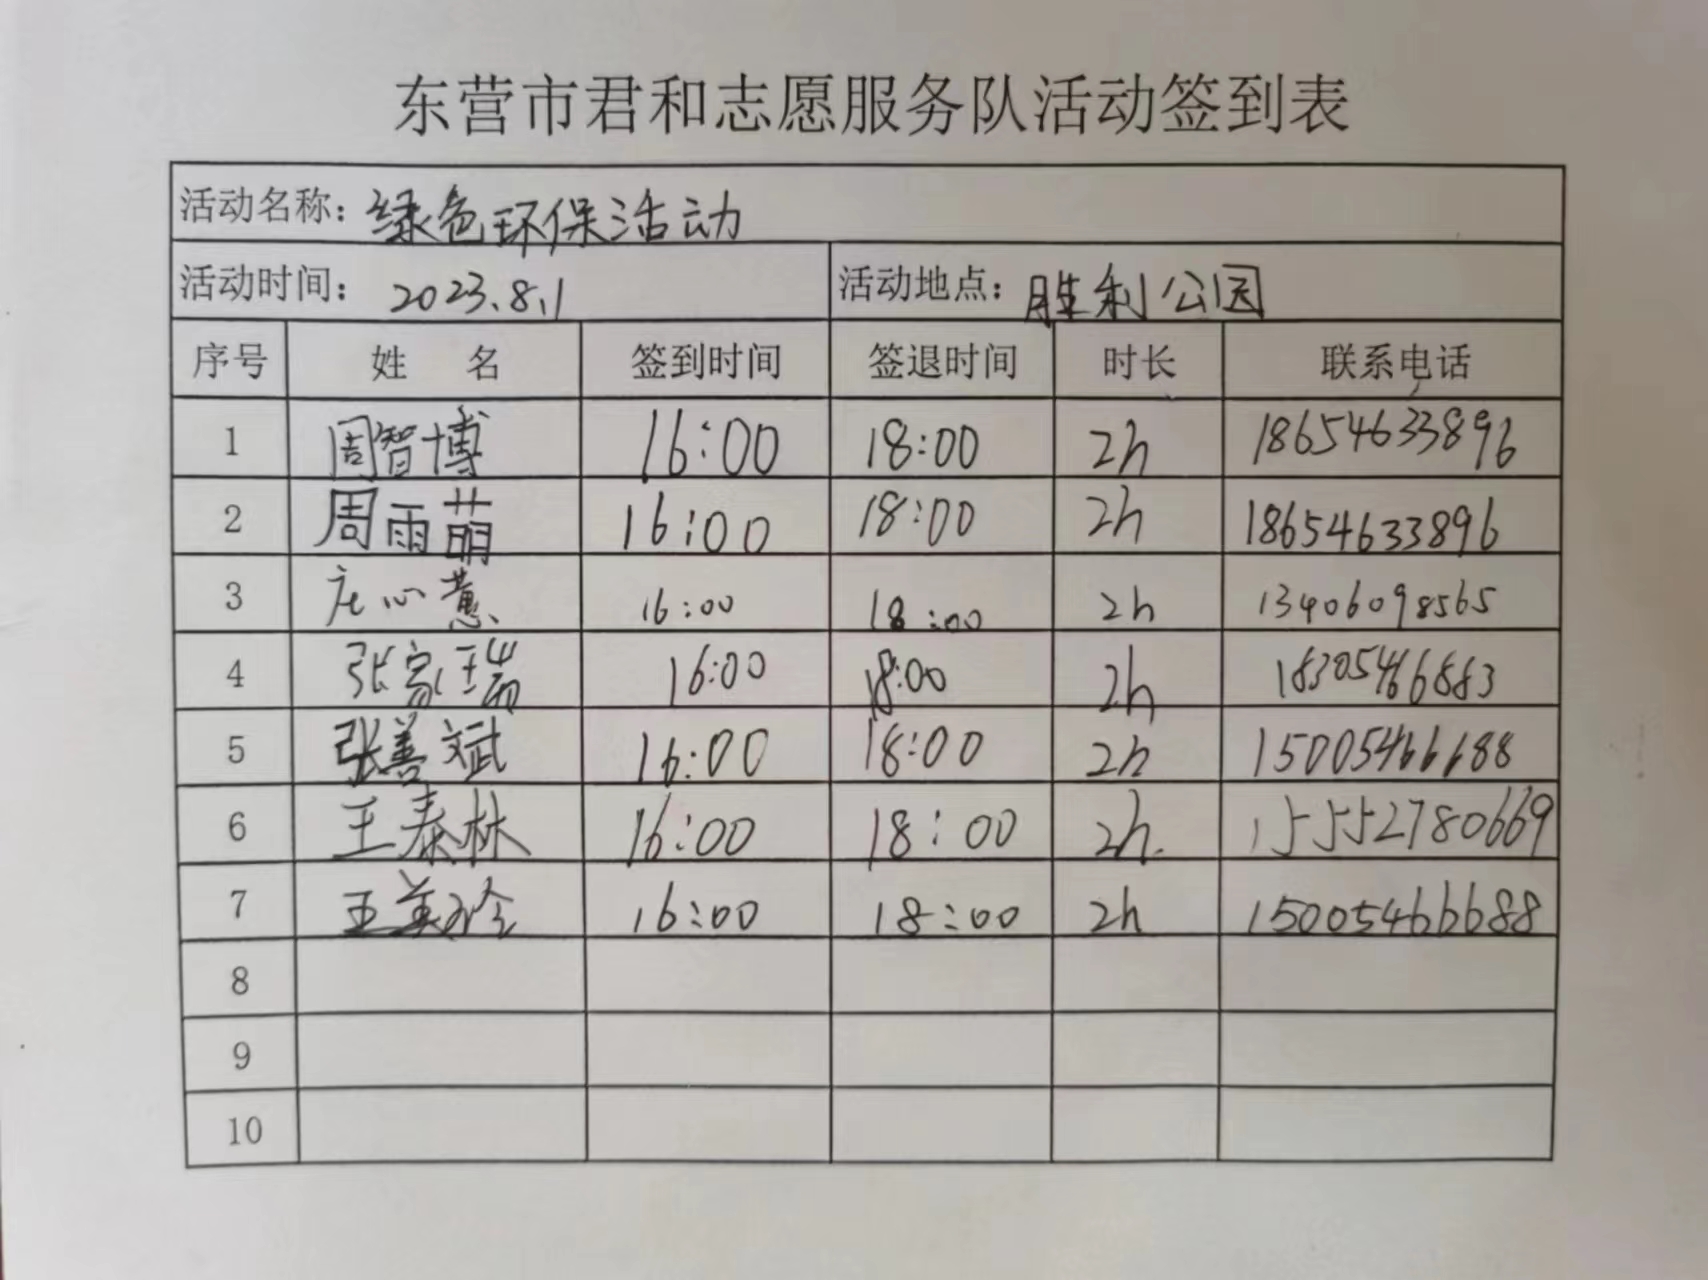 东营市君和志愿服务队活动签到表
活动名称：绿色环保活动
活动时间：2023.8.1 活动地点：胜利公园
序号 姓名 签到时间 签退时间 时长 联系电话
1 周智博 16:00 18:00 2h 18654633896
2 周雨萌 16:00 18:00 2h 18654633896
3 庄心慧 16:00 18:00 2h 13406098565
4 张家瑞 16:00 18:00 2h 18305466883
5 张善斌 16:00 18:00 2h 15005466688
6 王泰林 16:00 18:00 2h. 15552780669
7 王美玲 16:00 18:00 2h 15005466688
8
9
10